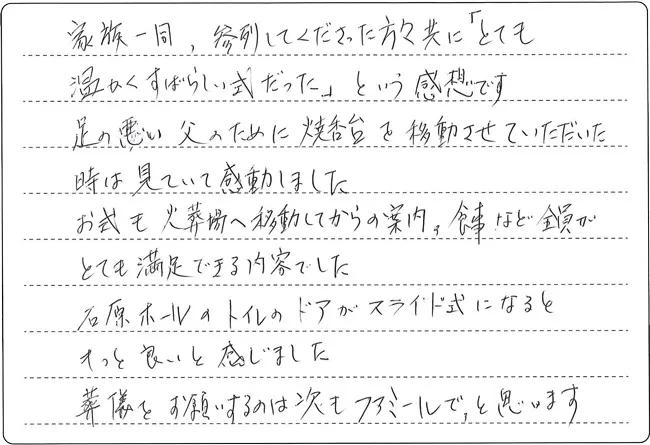 家族一同，参列してくださった方々共に「とても
温かくすばらしい式だった」という感想です
足の悪い父のために焼香台を移動させていただいた
時は見ていて感動しました
お式も火葬場へ移動してからの案内，食事など全員が
とても満足できる内容でした
石原ホールのトイレのドアがスライド式になると
もっと良いと感じました
葬儀をお願いするのは次もファミールで，と思います